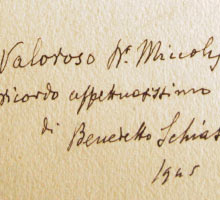 Valoroso Dr. Miccoli
ricordo affettuosissimo
di Benedetto Schias
1945